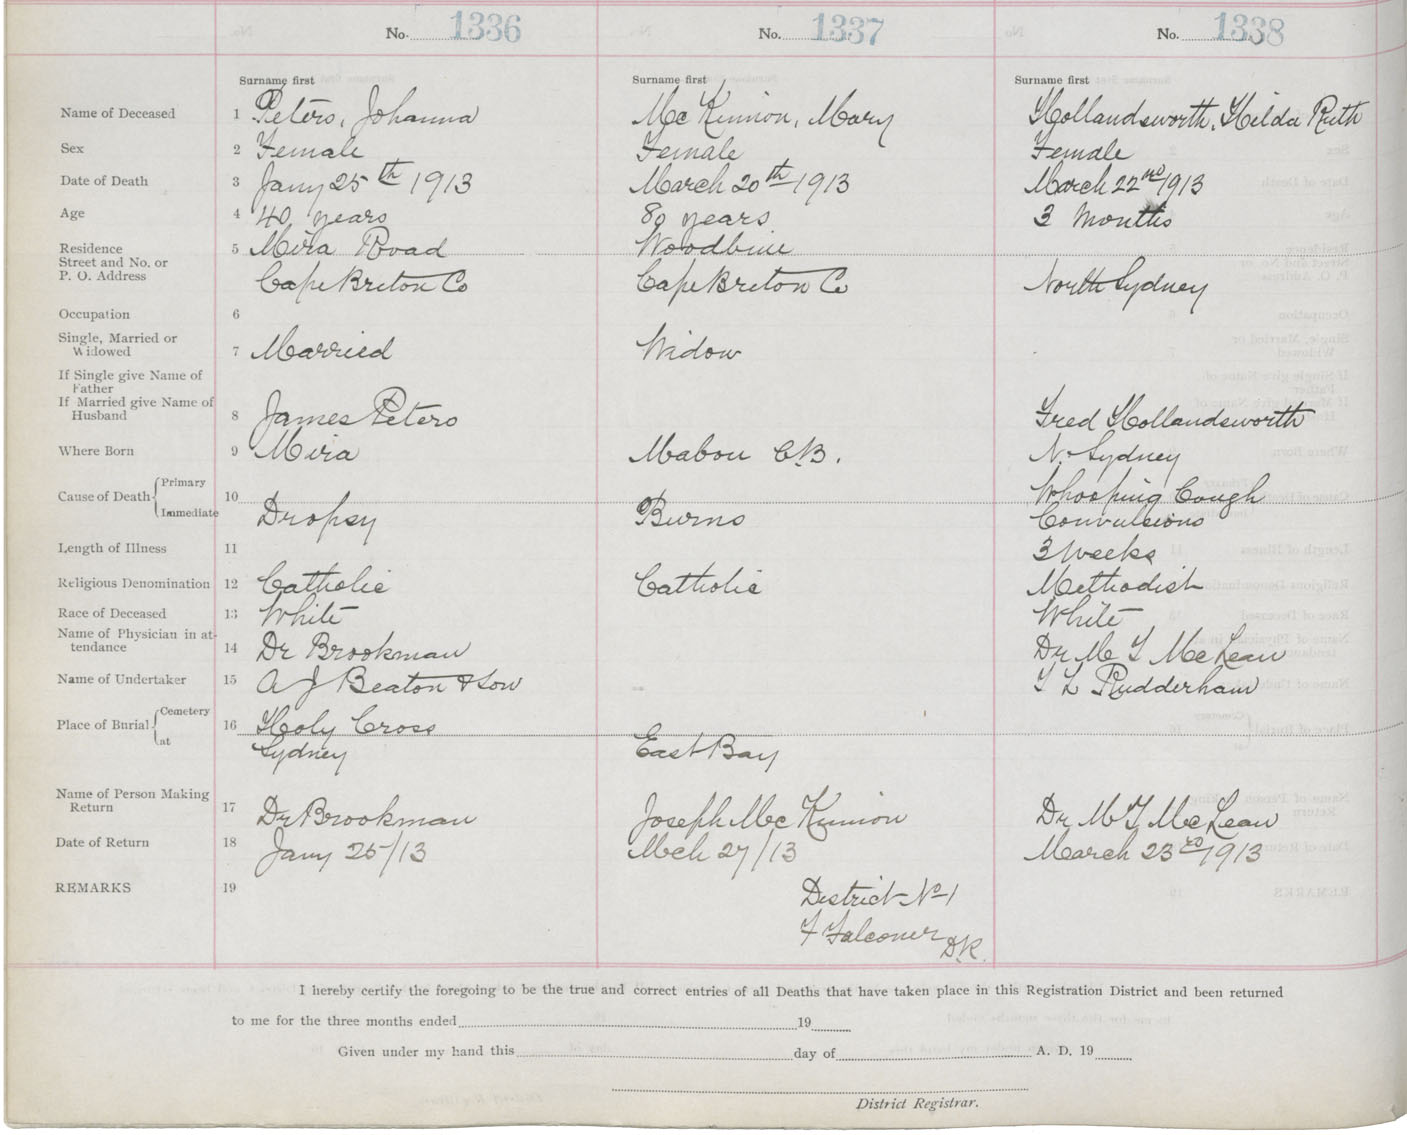 No. 1336 No. 1337 No. 1338
Surname first Surname first Surname first
Name of Deceased 1 Peters, Johanna McKinnon, Mary Hollandsworth, Hilda Ruth
Sex 2 Female Female Female
Date of Death 3 Jany 25th 1913 March 20th 1913 March 22nd 1913
Age 4 40 years 80 years 3 Months
Residence 5 Mira Road Woodbine
Street and No. or
P. O. Address Cape Breton Co Cape Breton Co North Sydney
Occupation 6
Single, Married or
Widowed 7 Married Widow
If Single give Name of
Father
If Married give Name of
Husband 8 James Peters Fred Hollandsworth
Where Born 9 Mira Mabou C.B. N. Sydney
Cause of Death Primary 10 Whooping Cough
Immediate Dropsy Burns Convulsions
Length of Illness 11 3 weeks
Religious Denomination 12 Catholic Catholic Methodist
Race of Deceased 13 White White
Name of Physician in at-
tendance 14 Dr Brookman Dr M T McLean
Name of Undertaker 15 A J Beaton & Son T L Rudderham
Place of Burial Cemetery 16 Holy Cross
at Sydney East Bay
Name of Person Making
Return 17 Dr Brookman Joseph McKinnon Dr M T McLean
Date of Return 18 Jany 25/13 Mch 27/13 March 23rd 1913
REMARKS 19 District No 1
F Falconer D.R.
I hereby certify the foregoing to be the true and correct entries of all Deaths that have taken place in this Registration District and been returned
to me for the three months ended 19
Given under my hand this day of A. D. 19
District Registrar.